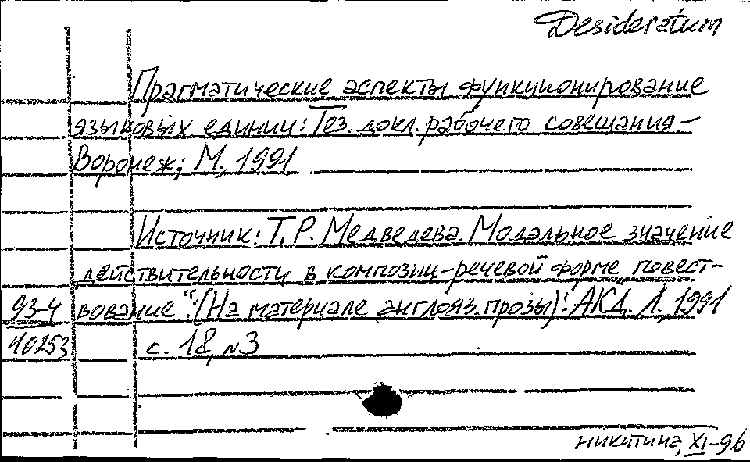 Desideratum
Прагматические аспекты функционирование
языковых единиц: Тез. докл. рабочего совещания –
Воронеж; М., 1991
Источник: Т.Р. Медведева. Модальное значение
действительности в композиц-речевой форме повест-
93-4 вование": (На материале англояз. прозы): АКД. Л., 1991
10253 с. 18, №3
Никитина, XI-96